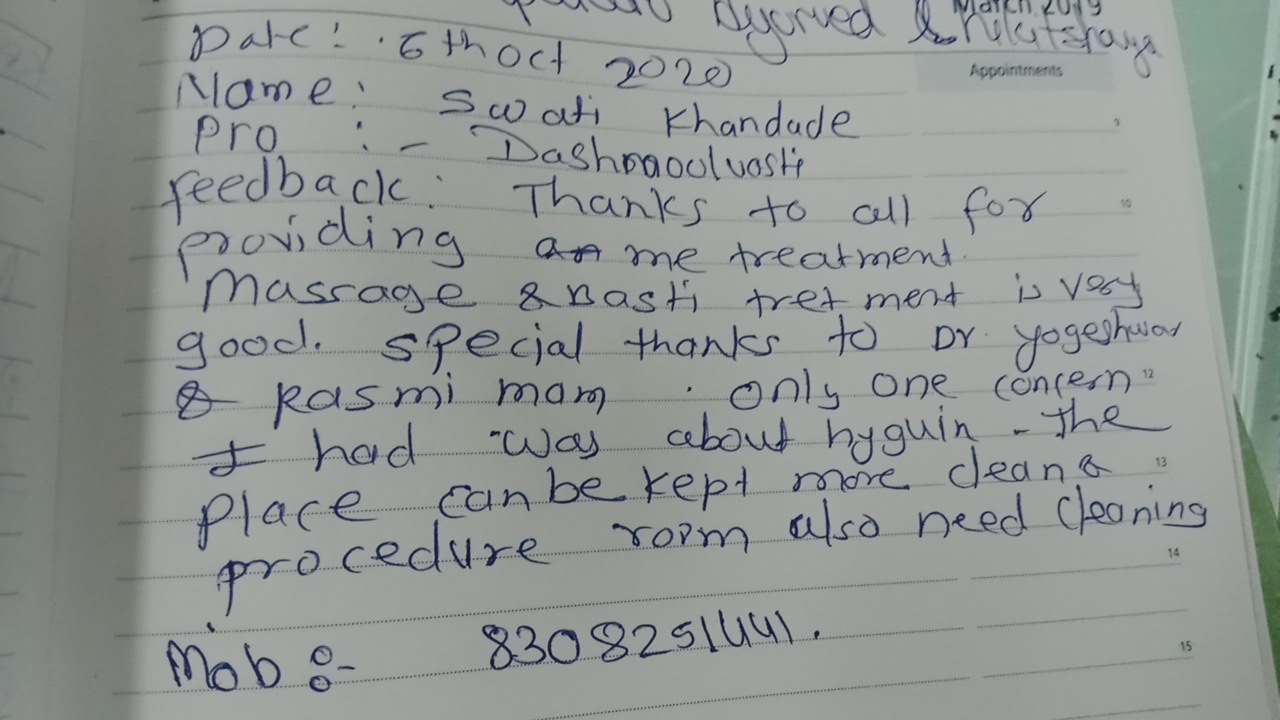 March 2019
Ayurved & Chikitshaya
Appointments
Date: . 6th oct 2020
Name: Swati Khandade
Pro :- Dashmoolvasti
feedback: Thanks to all for
providing me treatment.
Massage & Basti tretment is very
good. special thanks to Dr. yogeshwar
& Rasmi mam . only one concern
I had was about hyguin - The
place can be kept more clean &
procedure room also need cleaning
Mob :- 8308251441.
9
10
12
13
14
15